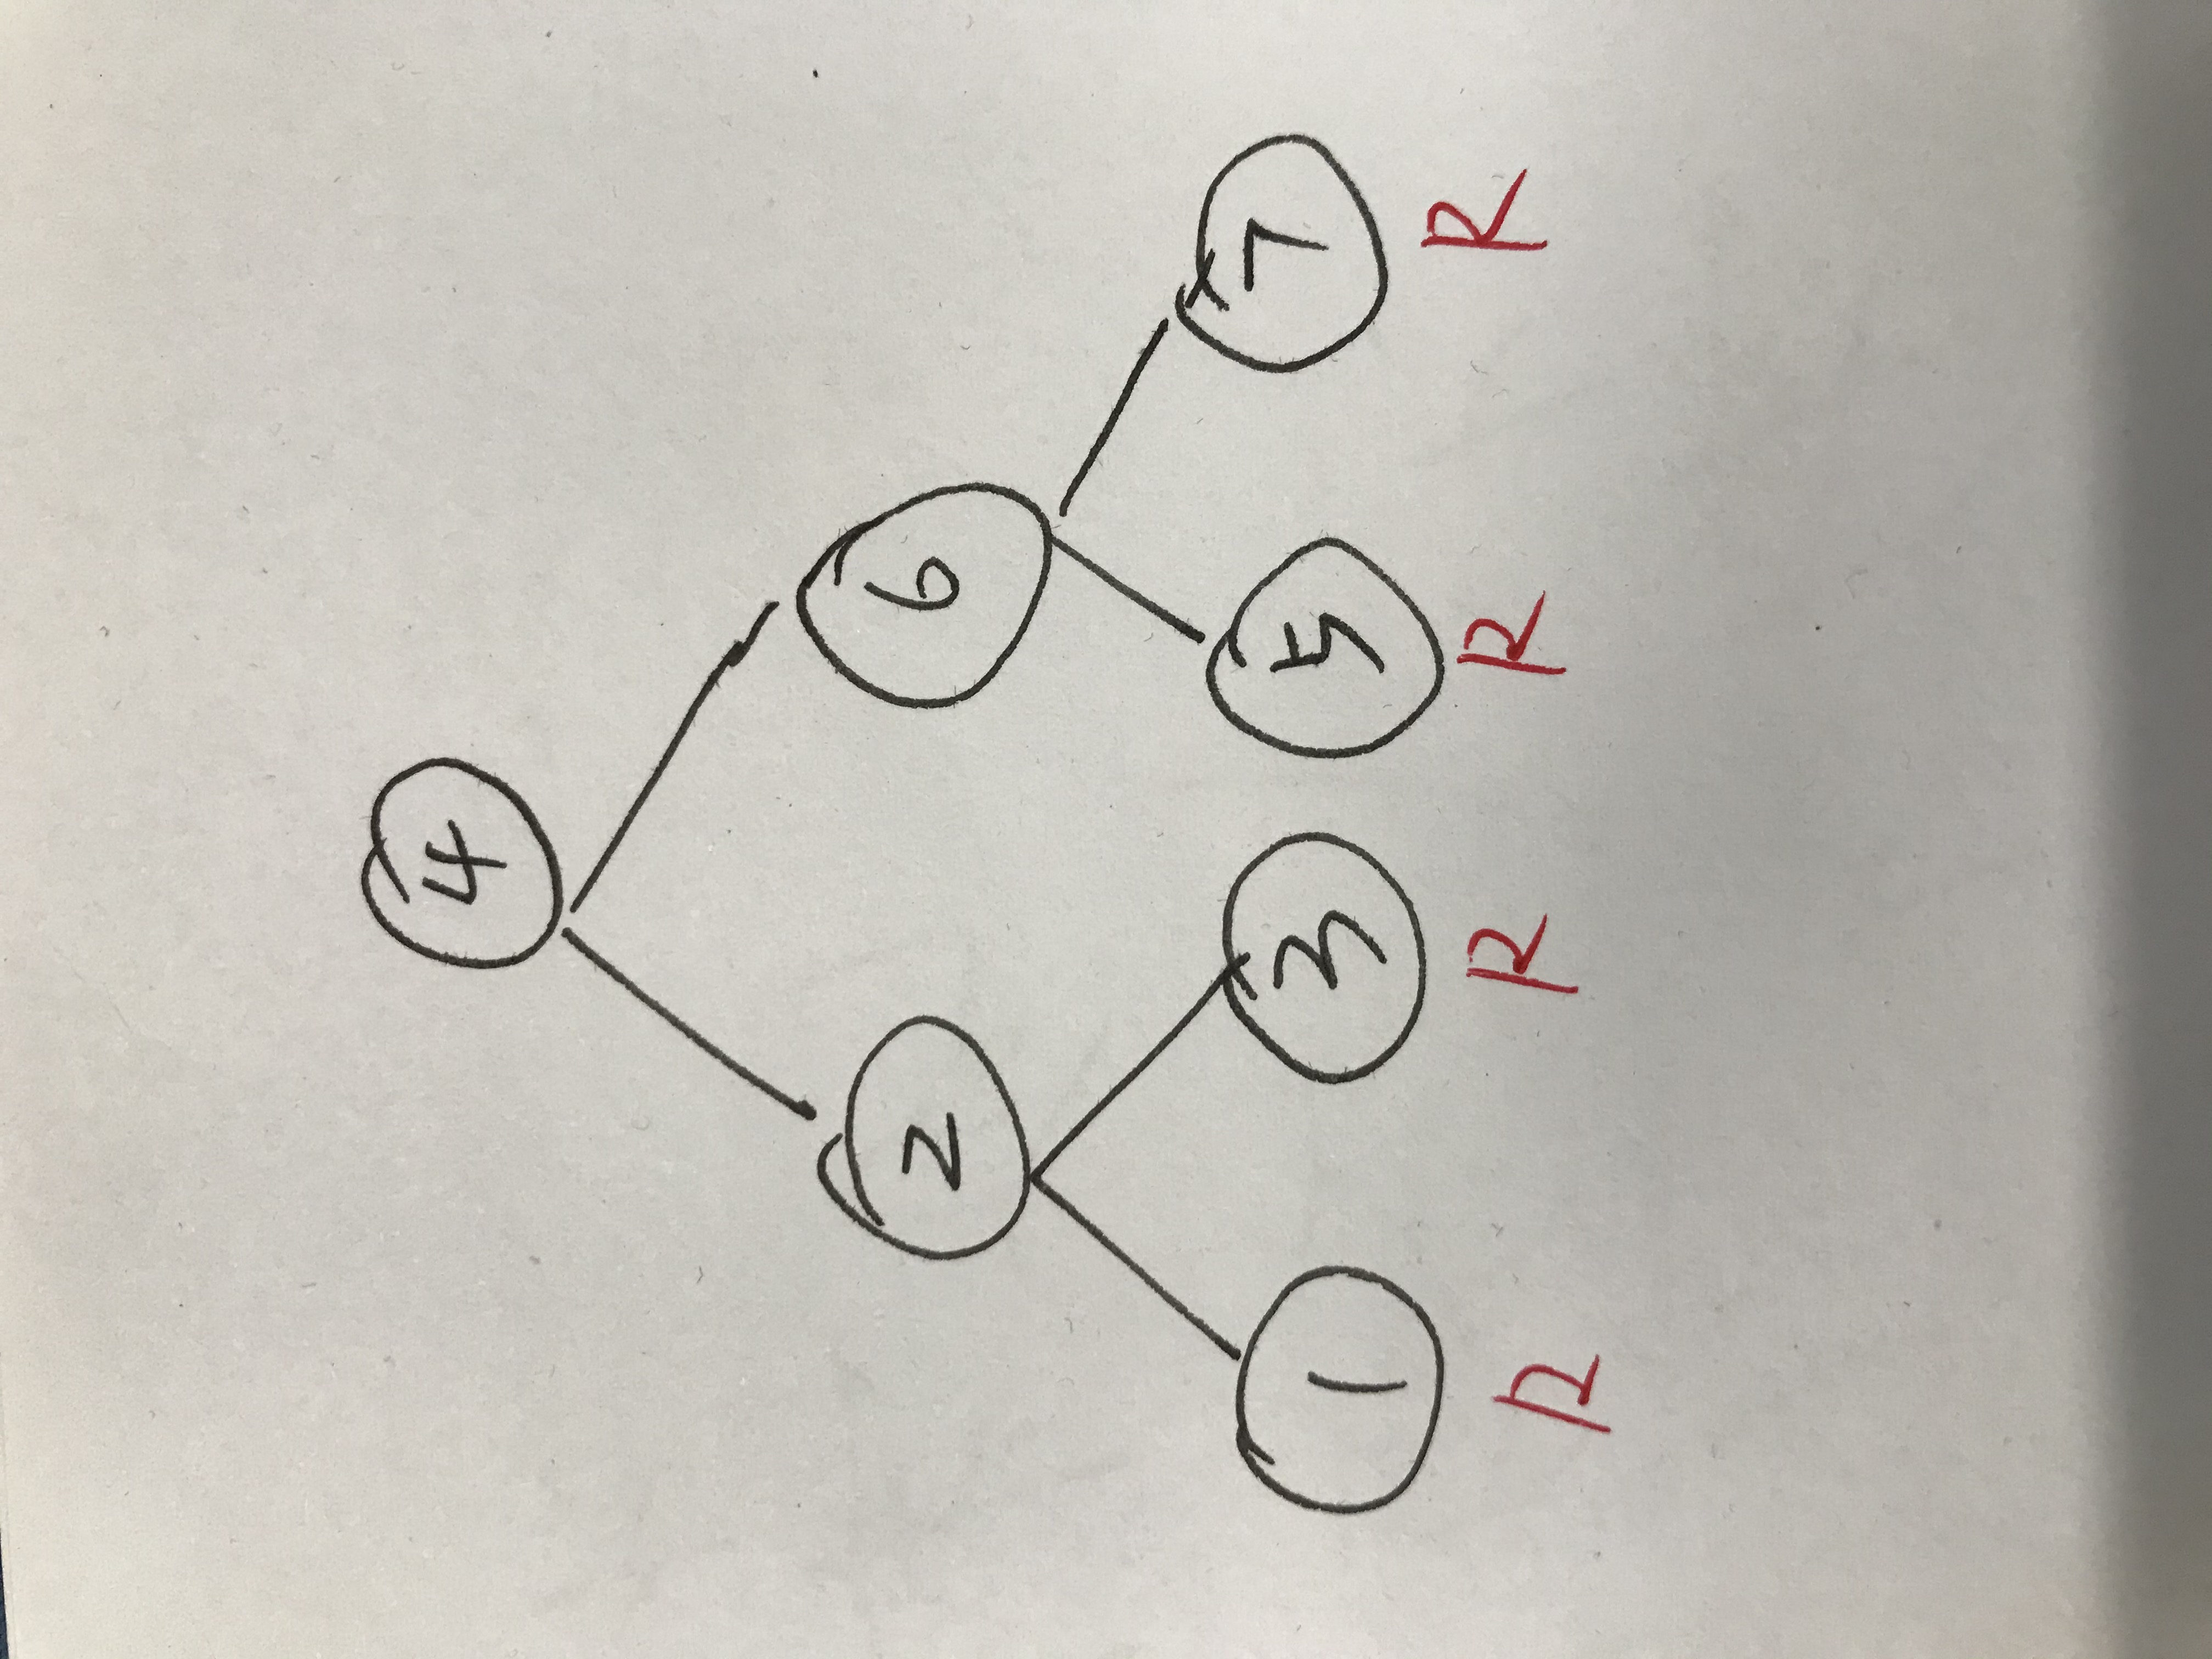 4
2 6
1 3 5 7
R R R R